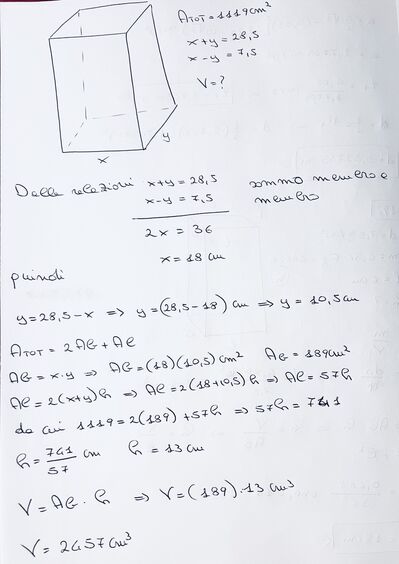 ATOT = 1119cm²
x+y = 28,5
x-y = 7,5
V = ?
y
x
Dalle relazioni x+y = 28,5 sommo membro e
x-y = 7,5 membro
2x = 36
x = 18 cm
quindi
y=28,5-x => y=(28,5-18)cm => y = 10,5cm
ATOT = 2AB+Aℓ
AB = x·y => AB=(18)(10,5)cm² AB = 189cm²
Aℓ = 2(x+y)h => Aℓ=2(18+10,5)h => Aℓ = 57h
da cui 1119=2(189)+57h => 57h = 741
h = 741/57 cm h = 13 cm
V = AB · h => V = (189)·13 cm³
V = 2457cm³